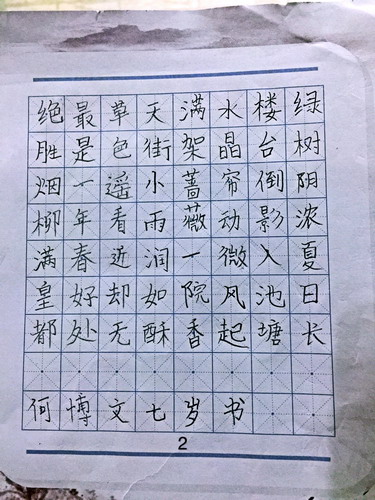 绿树阴浓夏日长
楼台倒影入池塘
水晶帘动微风起
满架蔷薇一院香
天街小雨润如酥
草色遥看近却无
最是一年春好处
绝胜烟柳满皇都
何博文七岁书
2